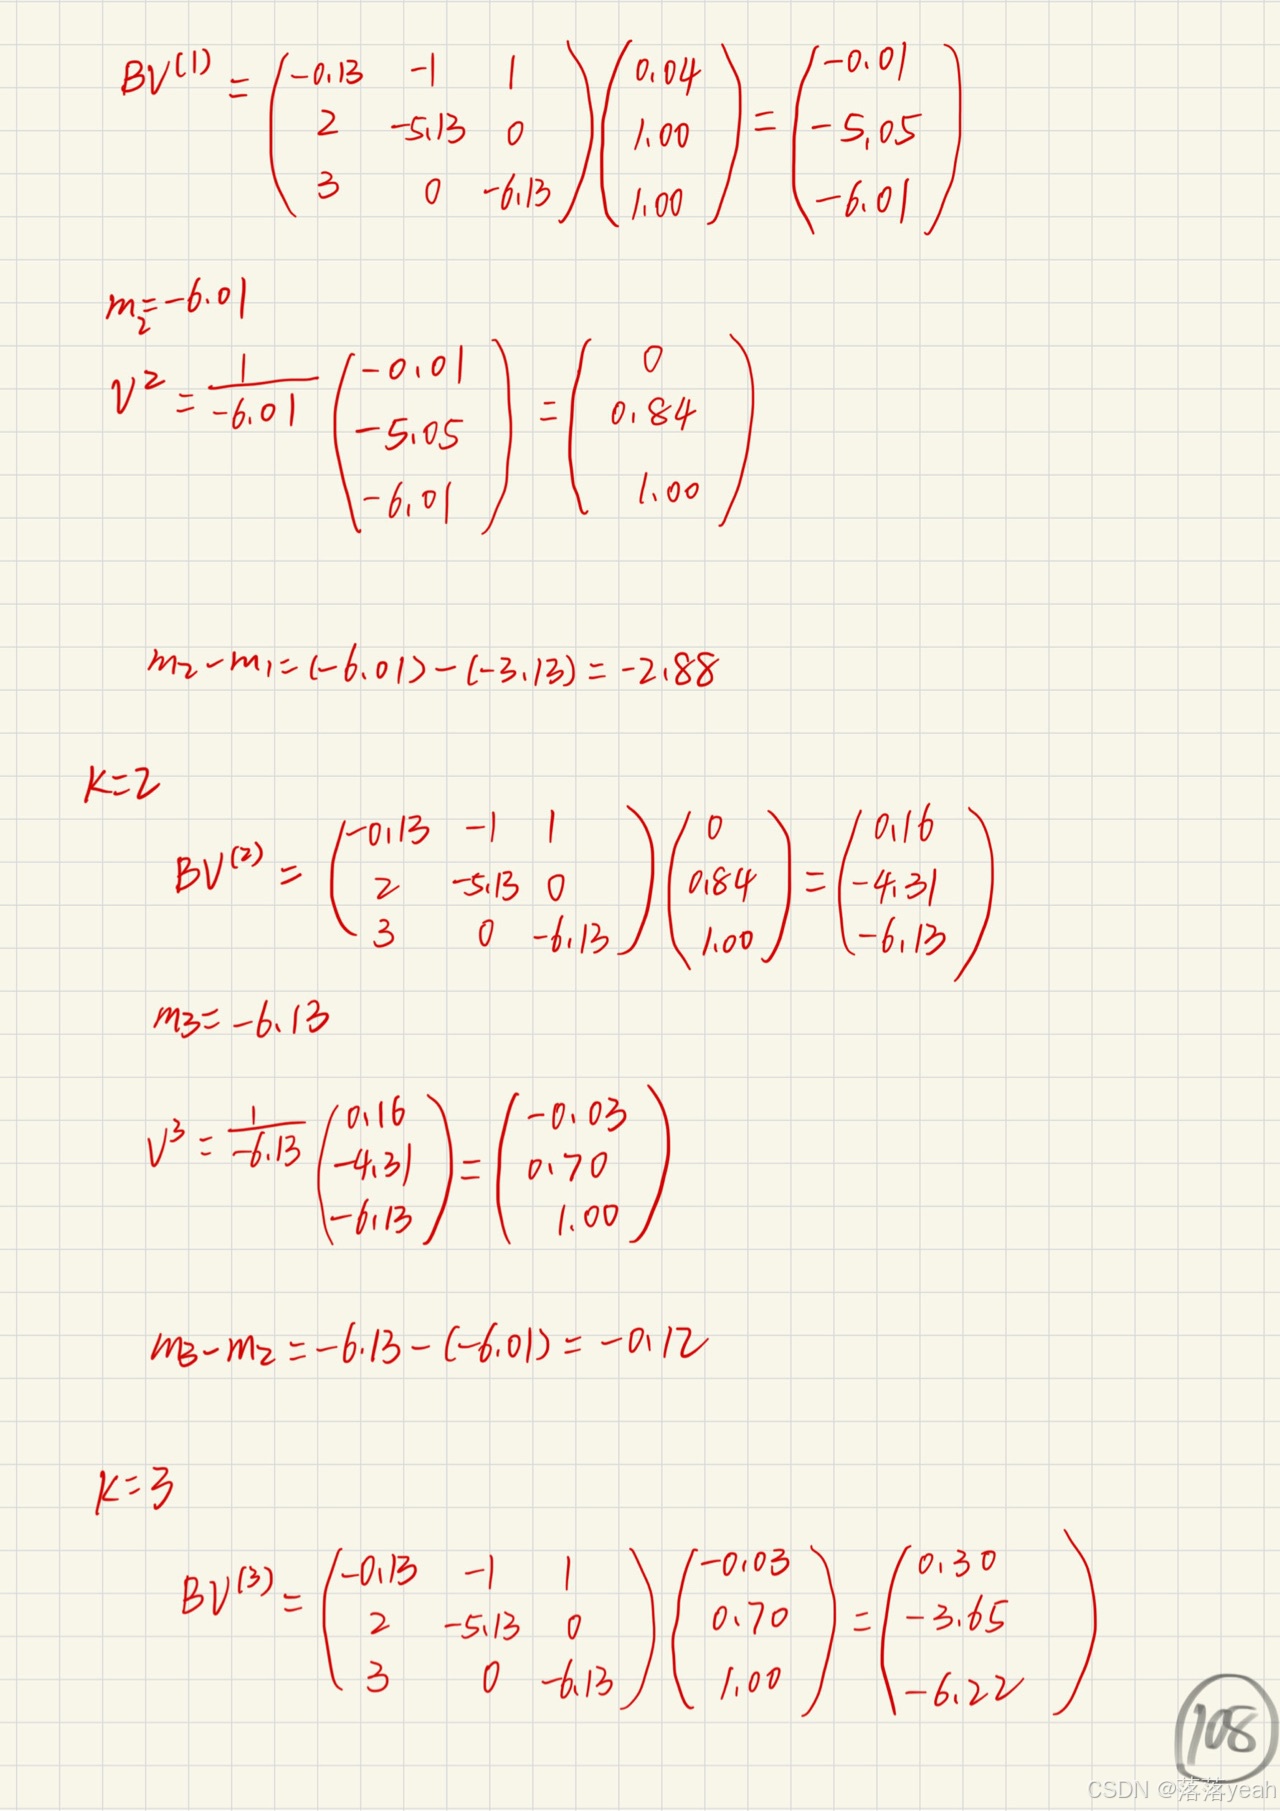 BV⁽¹⁾ = (-0.13 -1 1; 2 -5.13 0; 3 0 -6.13) (0.04; 1.00; 1.00) = (-0.01; -5.05; -6.01)
m₂=-6.01
V² = 1/-6.01 (-0.01; -5.05; -6.01) = (0; 0.84; 1.00)
m₂-m₁=(-6.01)-(-3.13)=-2.88
K=2
BV⁽²⁾ = (-0.13 -1 1; 2 -5.13 0; 3 0 -6.13) (0; 0.84; 1.00) = (0.16; -4.31; -6.13)
m₃=-6.13
V³ = 1/-6.13 (0.16; -4.31; -6.13) = (-0.03; 0.70; 1.00)
m₃-m₂=-6.13-(-6.01)=-0.12
K=3
BV⁽³⁾ = (-0.13 -1 1; 2 -5.13 0; 3 0 -6.13) (-0.03; 0.70; 1.00) = (0.30; -3.65; -6.22)
108
CSDN @落落yeah